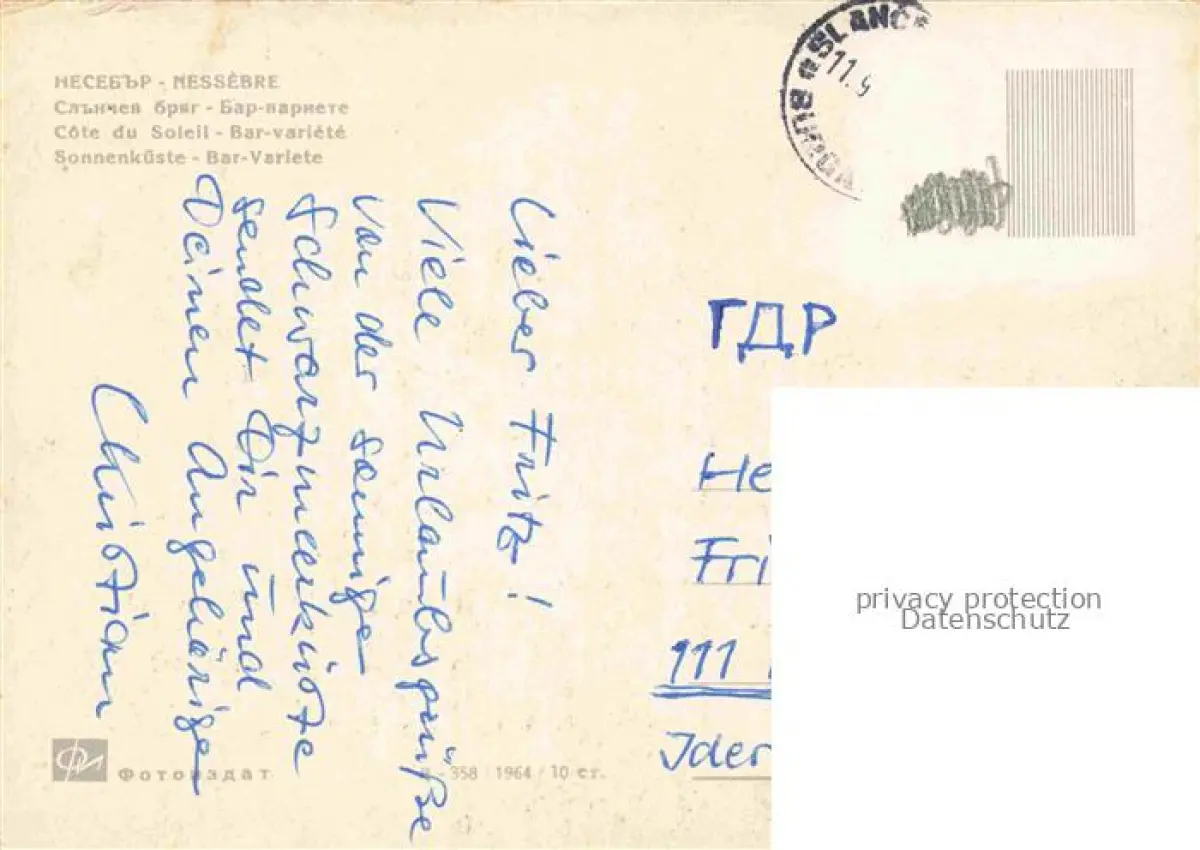 НЕСЕБЪР - NESSÈBRE
Слънчев бряг - Бар-вариете
Côte du Soleil - Bar-variété
Sonnenküste - Bar-Variete
SLANC
11.9
ГДР
Lieber Fritz!
Viele Urlaubsgrüße
von der sonnige
Schwarzmeerküste
sendet Dir und
Deinen Angehörige
Christian
He
Fri
111
Ider
privacy protection
Datenschutz
Фотоиздат
358 / 1964 / 10 ст.